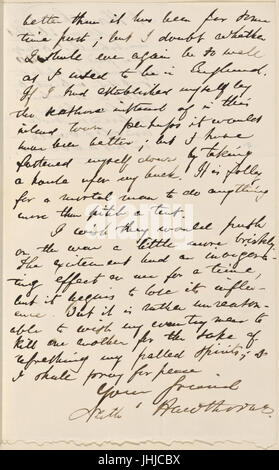 better than it has been for some
time past; but I doubt whether
I shall ever again be so well
as I used to be in England.
If I had established myself by
the seashore instead of in this
inland town, perhaps it would
have been better; but I have
fastened myself down by taking
a house upon my back. It is folly
for a mortal man to do anything
more than pitch a tent.
I wish they would push
on the war a little more briskly.
The excitement had an invigora-
ting effect on me for a time,
but it begins to lose its influ-
ence. But it is rather unreason-
able to wish my countrymen to
kill one another for the sake of
refreshing my palled spirits; so
I shall pray for peace.
Your friend
Nath' Hawthorne
alamy
Image ID: JHJCBX
www.alamy.com